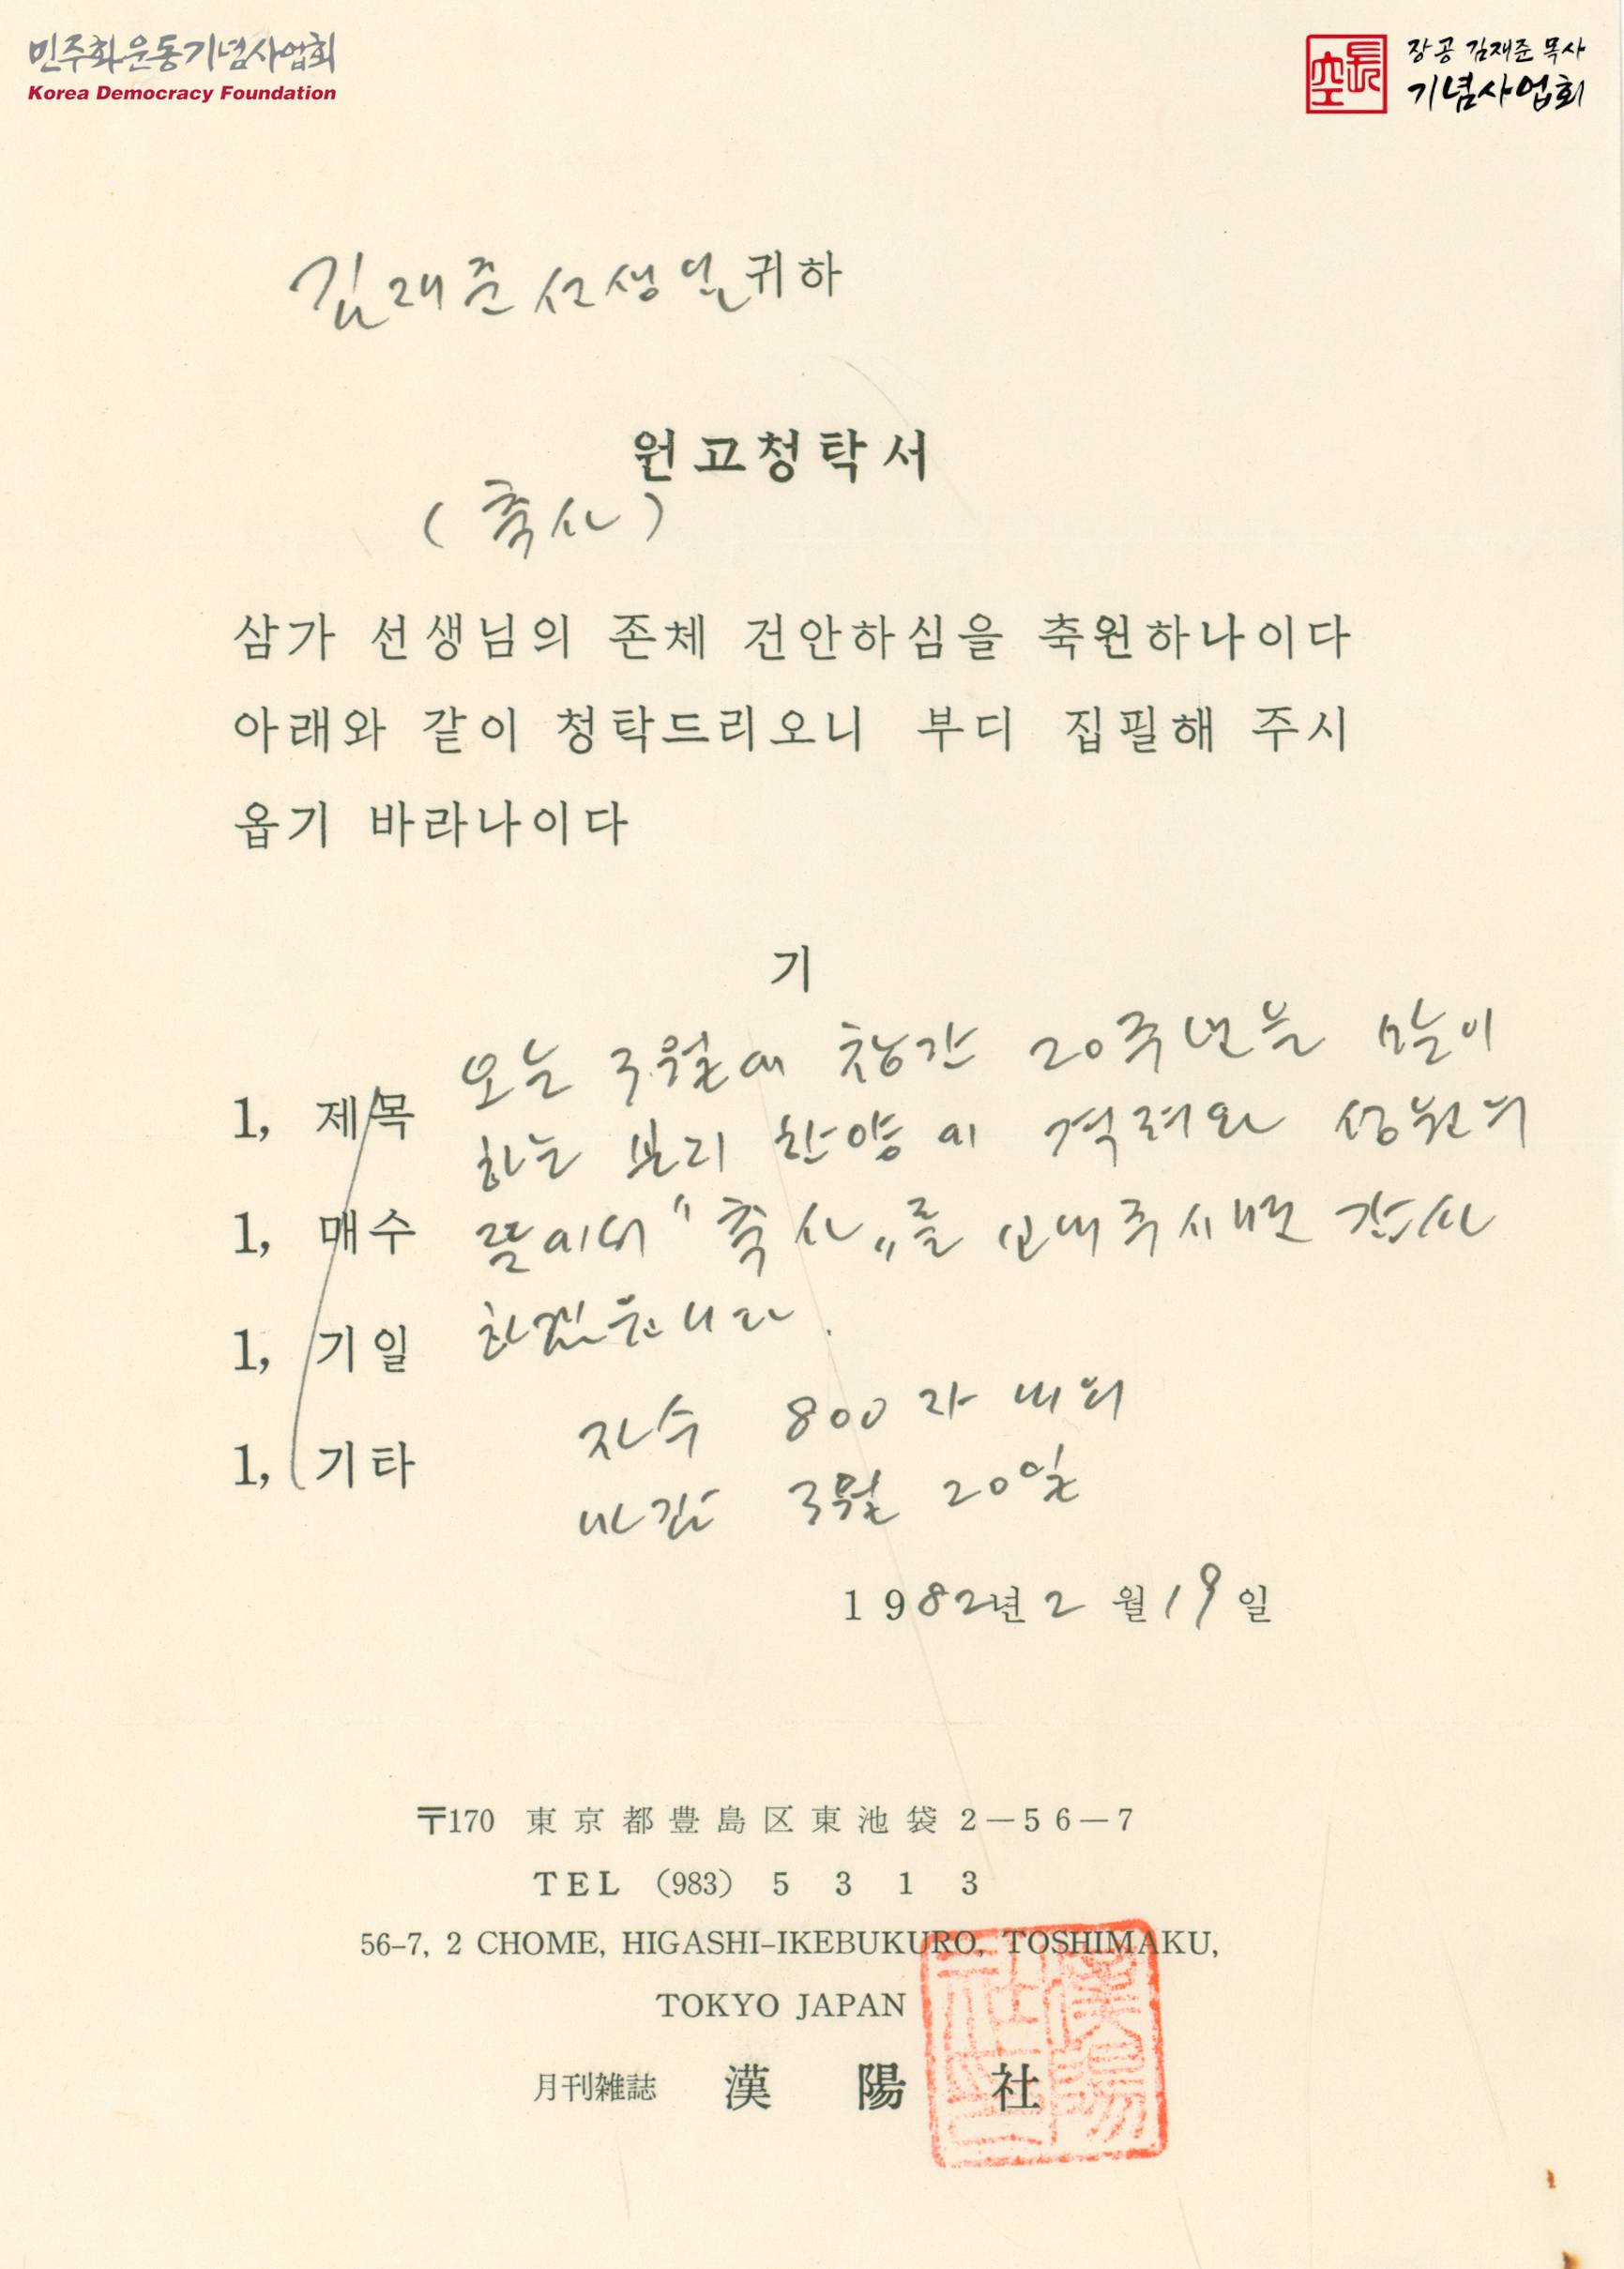 민주화운동기념사업회
Korea Democracy Foundation
長空
장공 김재준 목사
기념사업회
김재준 선생님 귀하
원고청탁서
(축사)
삼가 선생님의 존체 건안하심을 축원하나이다
아래와 같이 청탁드리오니 부디 집필해 주시
옵기 바라나이다
기
오는 3월에 창간 20주년을 맞이
1, 제목
하는 본지 한양에 격려와 성원의
1, 매수
뜻에서 "축사"를 보내주시면 감사
1, 기일
하겠읍니다.
자수 800자 내외
1, 기타
마감 3월 20일
1982년 2월 19일
〒170 東京都豊島区東池袋2-56-7
TEL (983) 5313
56-7, 2 CHOME, HIGASHI-IKEBUKURO, TOSHIMAKU,
TOKYO JAPAN
月刊雑誌 漢陽社